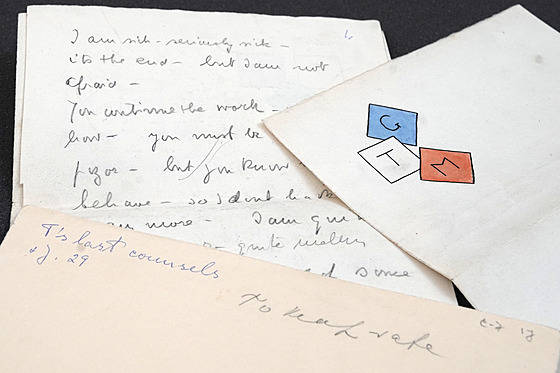 I am sick - seriously sick -
its the end - but I am not
afraid -
You continue the work -
how - you must be
but you know
behave - so I dont have
more - I am quite
quite
some
G
T M
T's last counsels
29
To